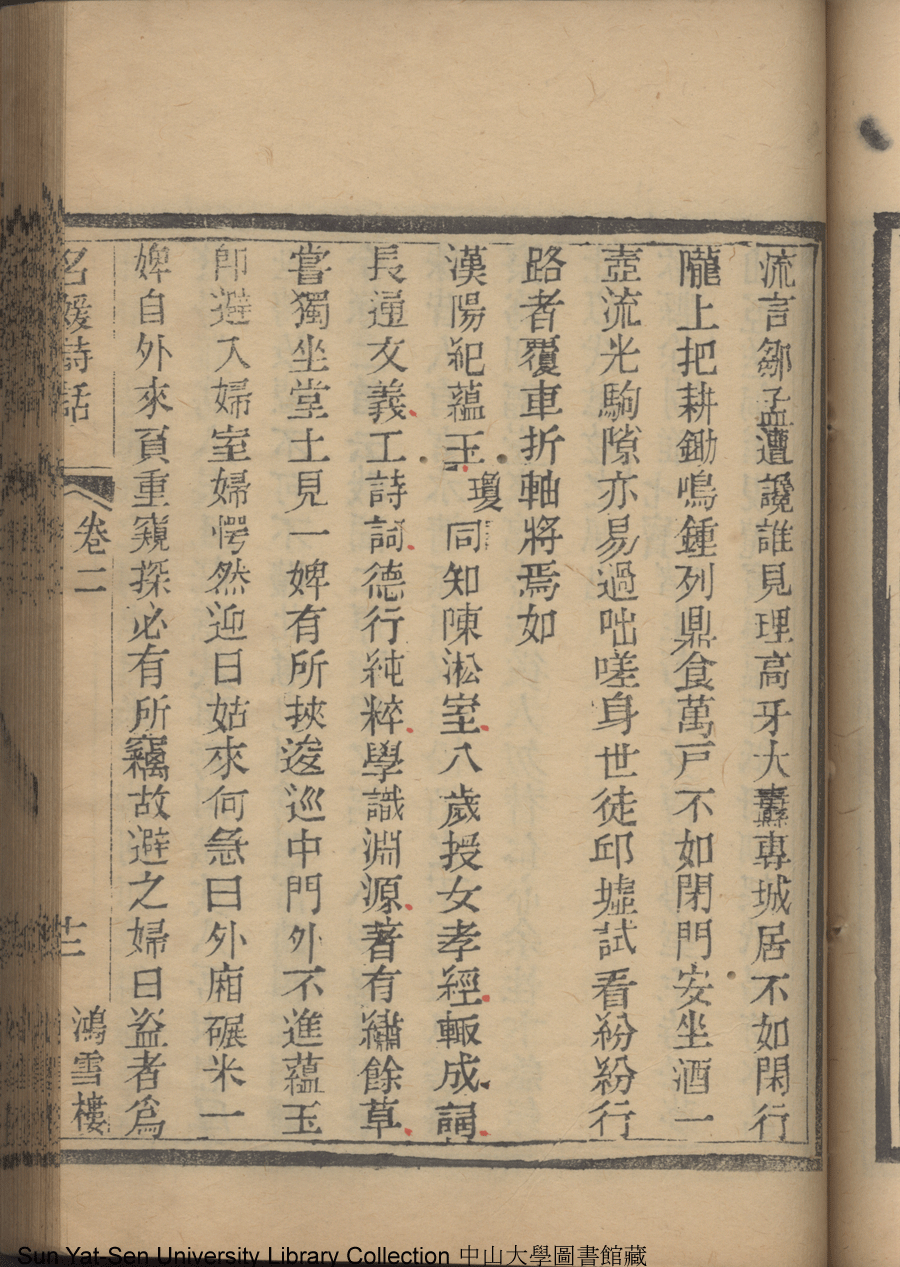 流言鄒孟遭讒誰見理高牙大纛專城居不如閑行
隴上把耕鋤鳴鍾列鼎食萬戸不如閉門安坐酒一
壺流光駒隙亦易過咄嗟身世徒邱墟試看紛紛行
路者覆車折軸將焉如
漢陽紀蘊玉瓊同知陳淞室八歲授女孝經輙成誦
長通文義工詩詞德行純粹學識淵源著有繡餘草
嘗獨坐堂上見一婢有所挾逡巡中門外不進蘊玉
即避入婦室婦愕然迎曰姑來何急曰外廂碾米一
婢自外來負重窺探必有所竊故避之婦曰盜者爲
名媛詩話
卷二
十二
鴻雪樓
Sun Yat-Sen University Library Collection 中山大學圖書館藏